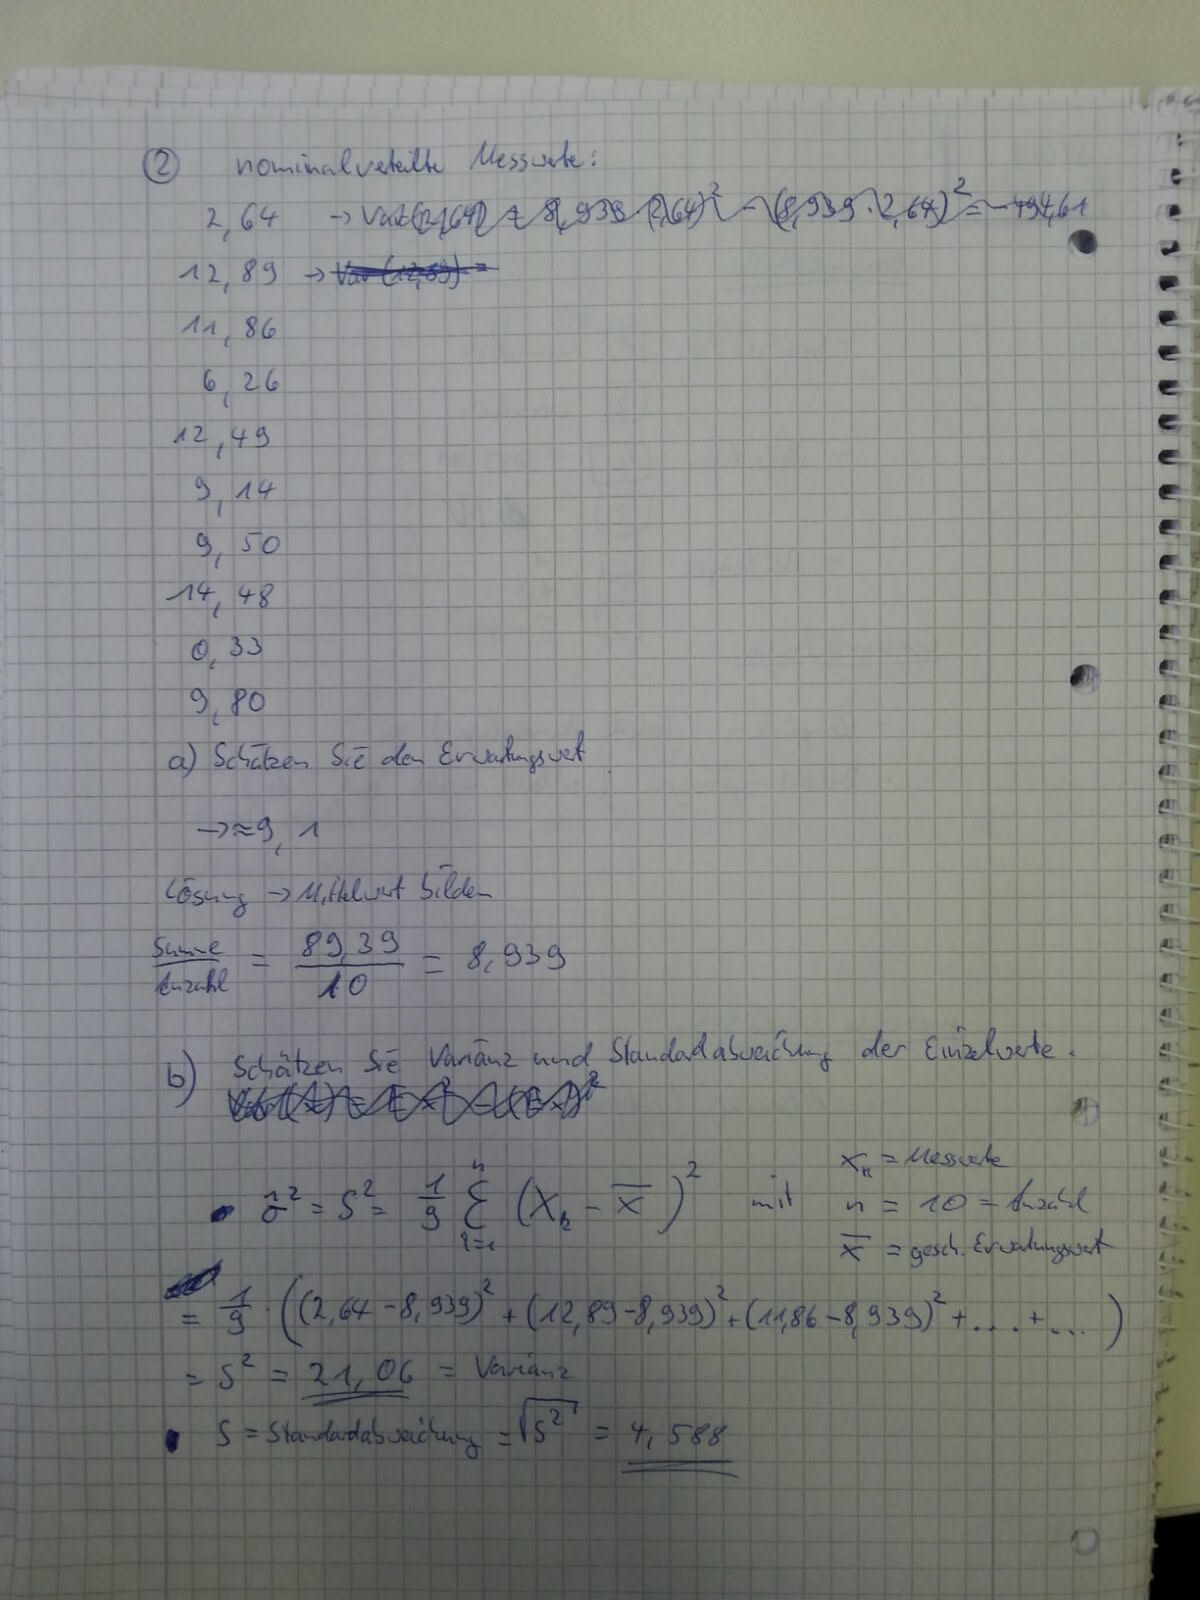 ② nominalverteilte Messwerte:
2,64 → Var(2,64) = 8,939 (2,64)² - (8,939 · 2,64)² = -494,61
12,89 → Var (12,89) =
11,86
6,26
12,49
9,14
9,50
14,48
0,33
9,80
a) Schätzen Sie den Erwartungswert
→ ≈ 9,1
Lösung → Mittelwert bilden
Summe/Anzahl = 89,39/10 = 8,939
b) Schätzen Sie Varianz und Standardabweichung der Einzelwerte.
xₖ = Messwerte
• σ̂² = S² = 1/9 Σ (Xₖ - x̄)² mit n = 10 = Anzahl
x̄ = gesch. Erwartungswert
= 1/9 · ((2,64 - 8,939)² + (12,89 - 8,939)² + (11,86 - 8,939)² + ... + ...)
= S² = 21,06 = Varianz
• S = Standardabweichung = √S² = 4,588